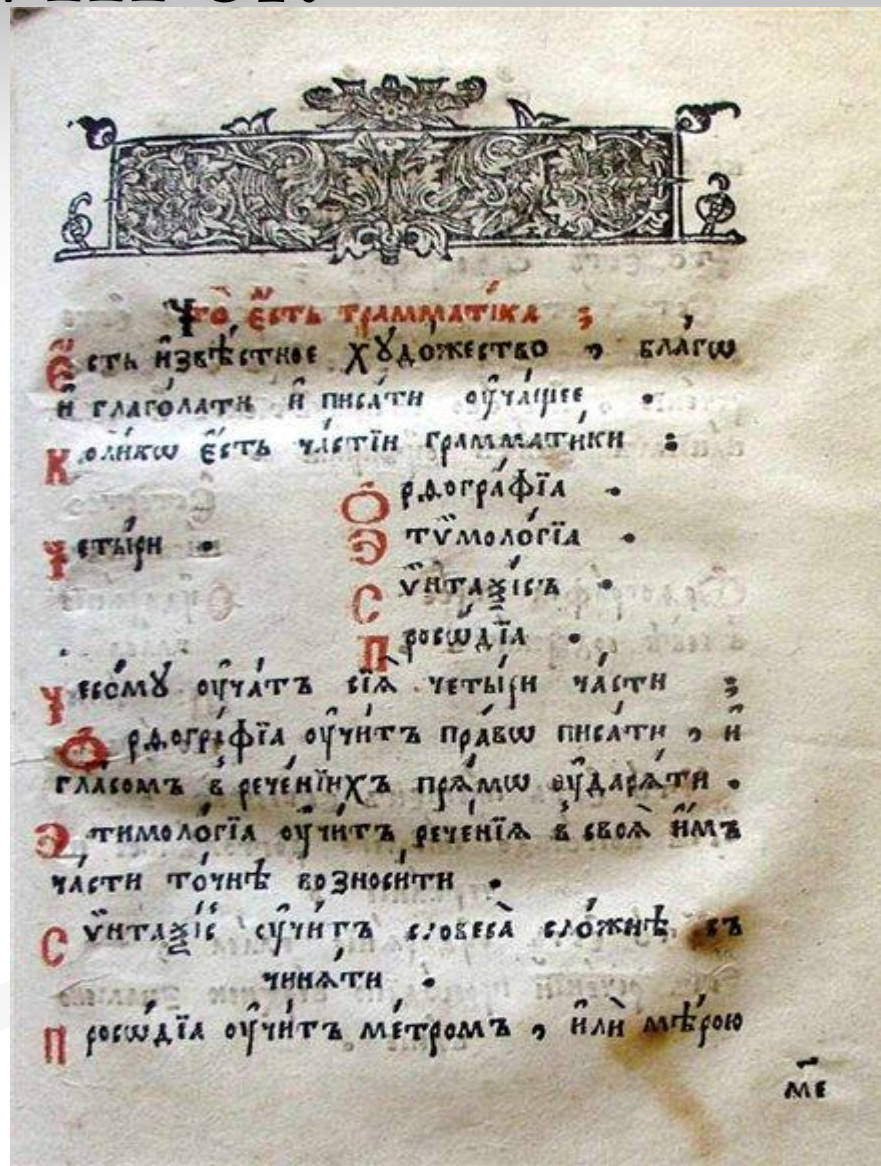 Что̀ є҆́сть грамматі́ка ;
Є҆́сть и҆звѣ́стное хꙋдо́жество , благѡ
и҆ глаго́лати и҆ писа́ти ᲂу҆ча́щее .
Коли́кѡ є҆́сть ча́стїи грамматі́ки ;
Ѻ҆рѳогра́фїа .
Четы́ри . Э҆тѷмоло́гїа .
Сѷ́нтаѯїсъ .
Просѡ́дїа .
Чесомꙋ̀ ᲂу҆ча́тъ сїѧ̑ четы́ри ча́сти ;
Ѻ҆рѳогра́фїа ᲂу҆чи́тъ пра́вѡ писа́ти , и҆
гла́сомъ в̾ рече́нїихъ прѧ́мѡ ᲂу҆дарѧ́ти .
Э҆тимоло́гїа ᲂу҆чи́тъ рече́нїѧ в̾ своѧ̑ и҆̀мъ
ча́сти то́чнѣ возноси́ти .
Сѷ́нтаѯїс ᲂу҆чи́тъ словеса̀ сло́жнѣ съ
чинѧ́ти .
Просѡ́дїа ᲂу҆чи́тъ ме́тромъ , и҆лѝ мѣ́рою
ме